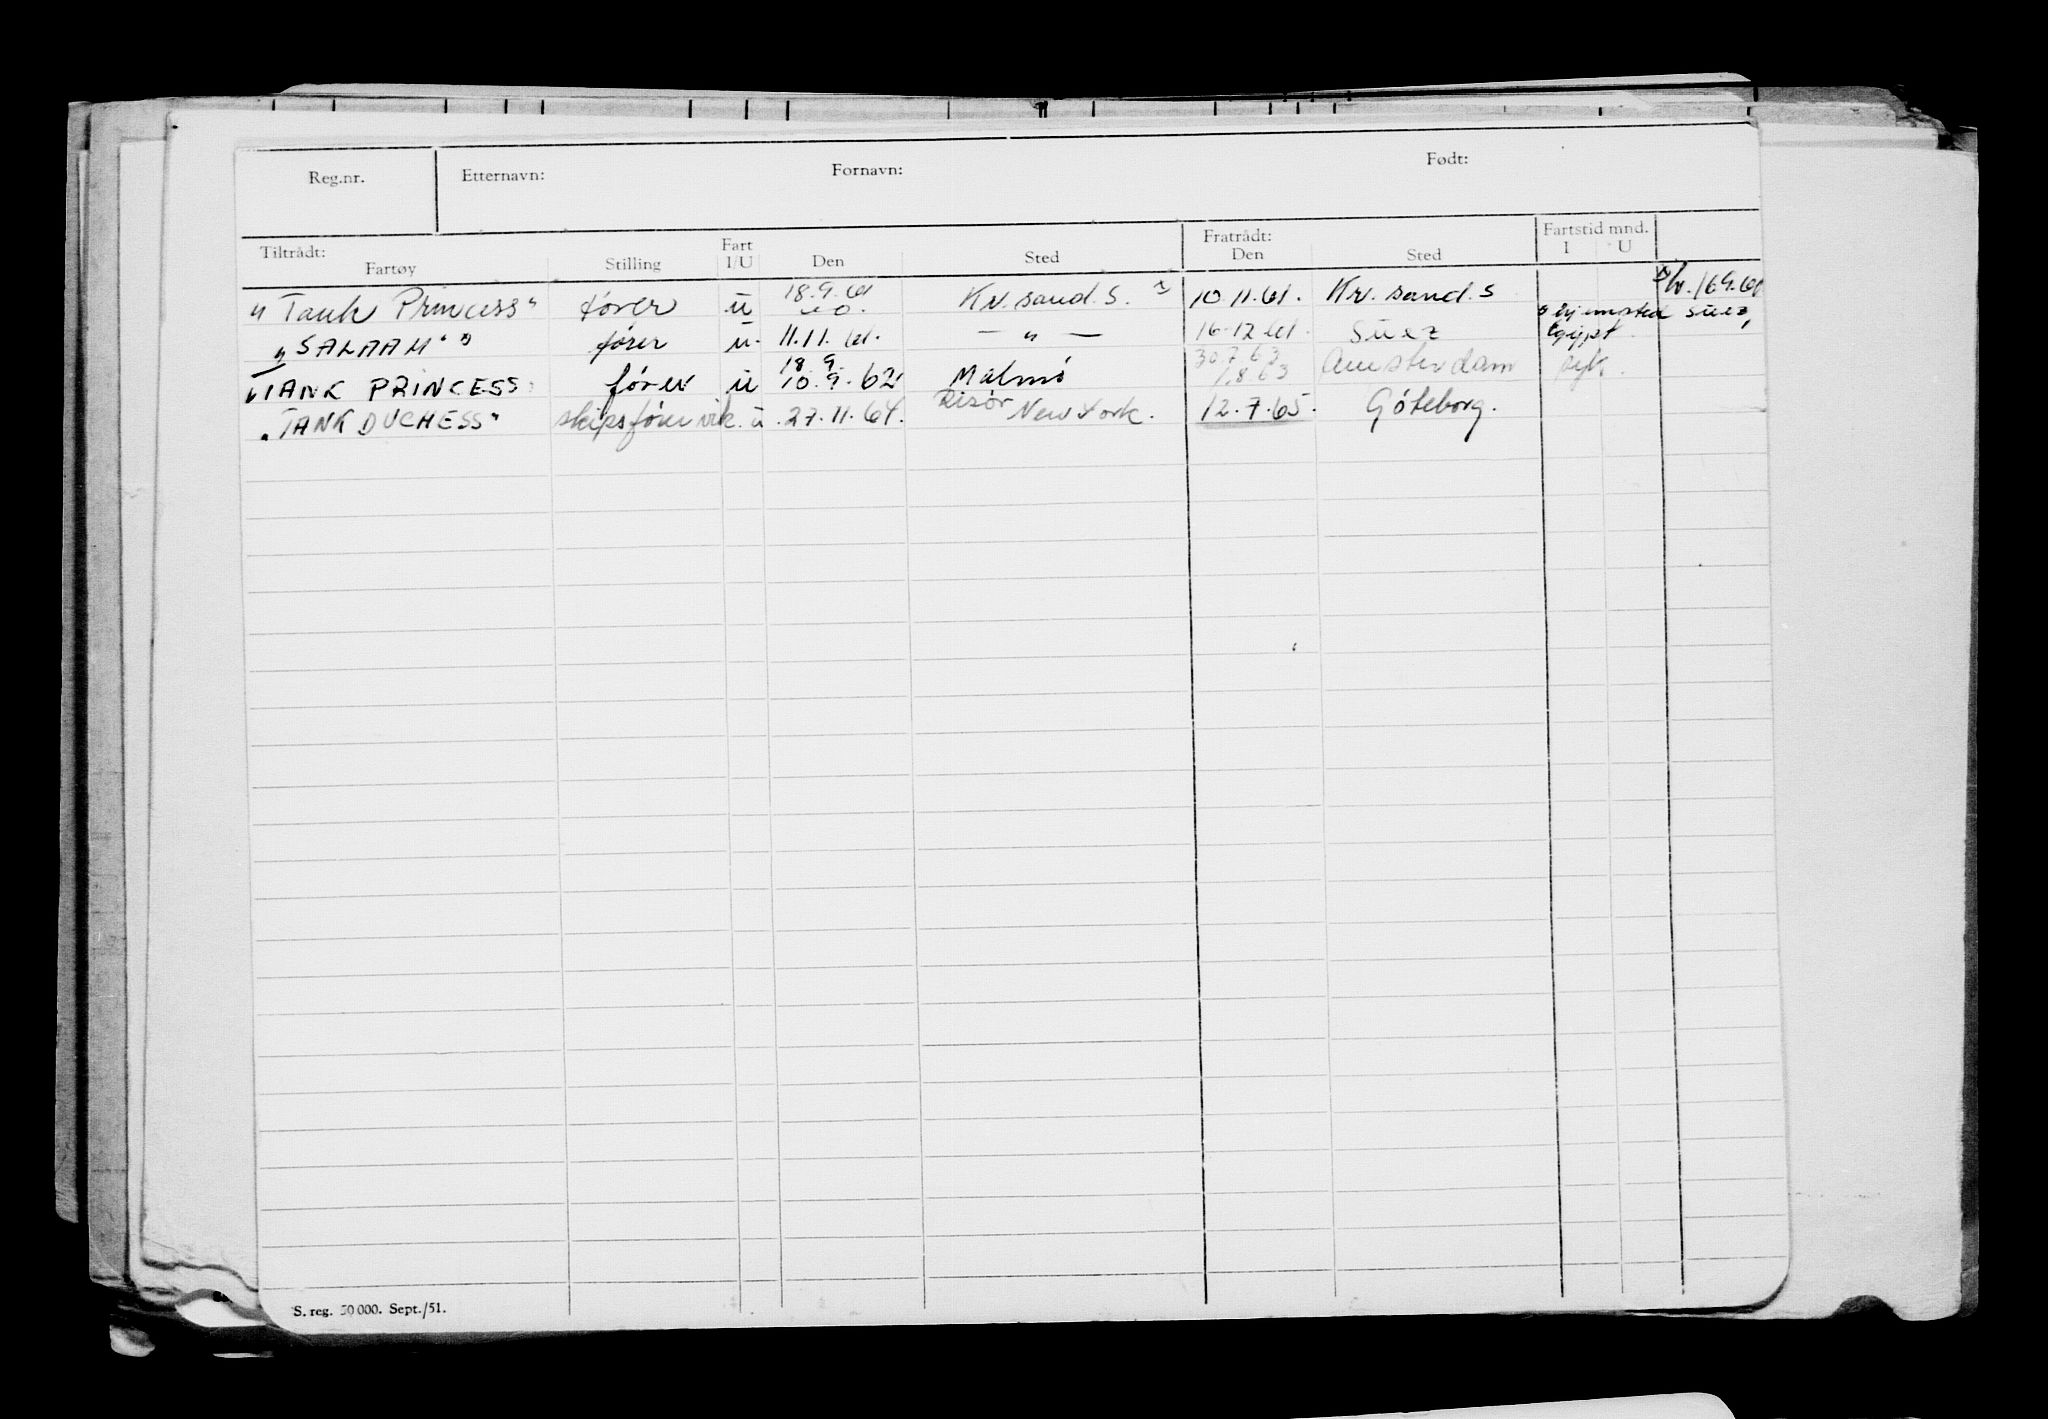 Reg.nr. Etternavn: Fornavn: Født:
Tiltrådt: Fartøy Stilling Fart I/U Den Sted Fratrådt: Den Sted Fartstid mnd. I U
"Tank Princess" fører u 18.9.61 Kr.sand.S. x) 10.11.61. Kr. sand.S
"SALAAM" fører u. 11.11.61. — " — 16.12.61. Suez Egypt.
TANK PRINCESS fører u 18.9. 10.9.62 Malmö 30.7.63 1.8.63 Amsterdam syk.
"TANK DUCHESS" skipsfører vik. u. 27.11.64. Risør New York. 12.7.65. Göteborg.
S. reg. 50 000. Sept./51.